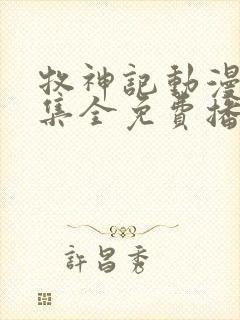 牧神記動漫
集全免費播
許昌秀